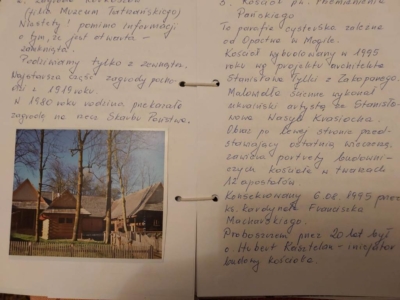 2. Zagroda Korkoszów
(filia Muzeum Tatrzańskiego)
Niestety! pomimo informacji
o tym, że jest otwarta -
zamknięta.
Podziwiamy tylko z zewnątrz.
Najstarsza część zagrody pocho-
dzi z 1919 roku.
W 1980 roku rodzina przekazała
zagrodę na rzecz Skarbu Państwa.
3. Kościół pw. Przemienienia
Pańskiego
To parafia cysterska zależna
od Opactwa w Mogile.
Kościół wybudowany w 1995
roku wg projektu architekta
Stanisława Tylki z Zakopanego.
Malowidła ścienne wykonał
ukraiński artysta ze Stanisła-
wowa Wasyl
Obraz po lewej stronie przed-
stawiający ostatnią wieczerzę,
zawiera portrety budowni-
czych kościoła w twarzach
12 apostołów.
Konsekrowany 6.08.1995 przez
ks. kardynała Franciszka
Macharskiego.
Proboszczem przez 20 lat był
o. Hubert Kostrzelan - inicjator
budowy kościoła.